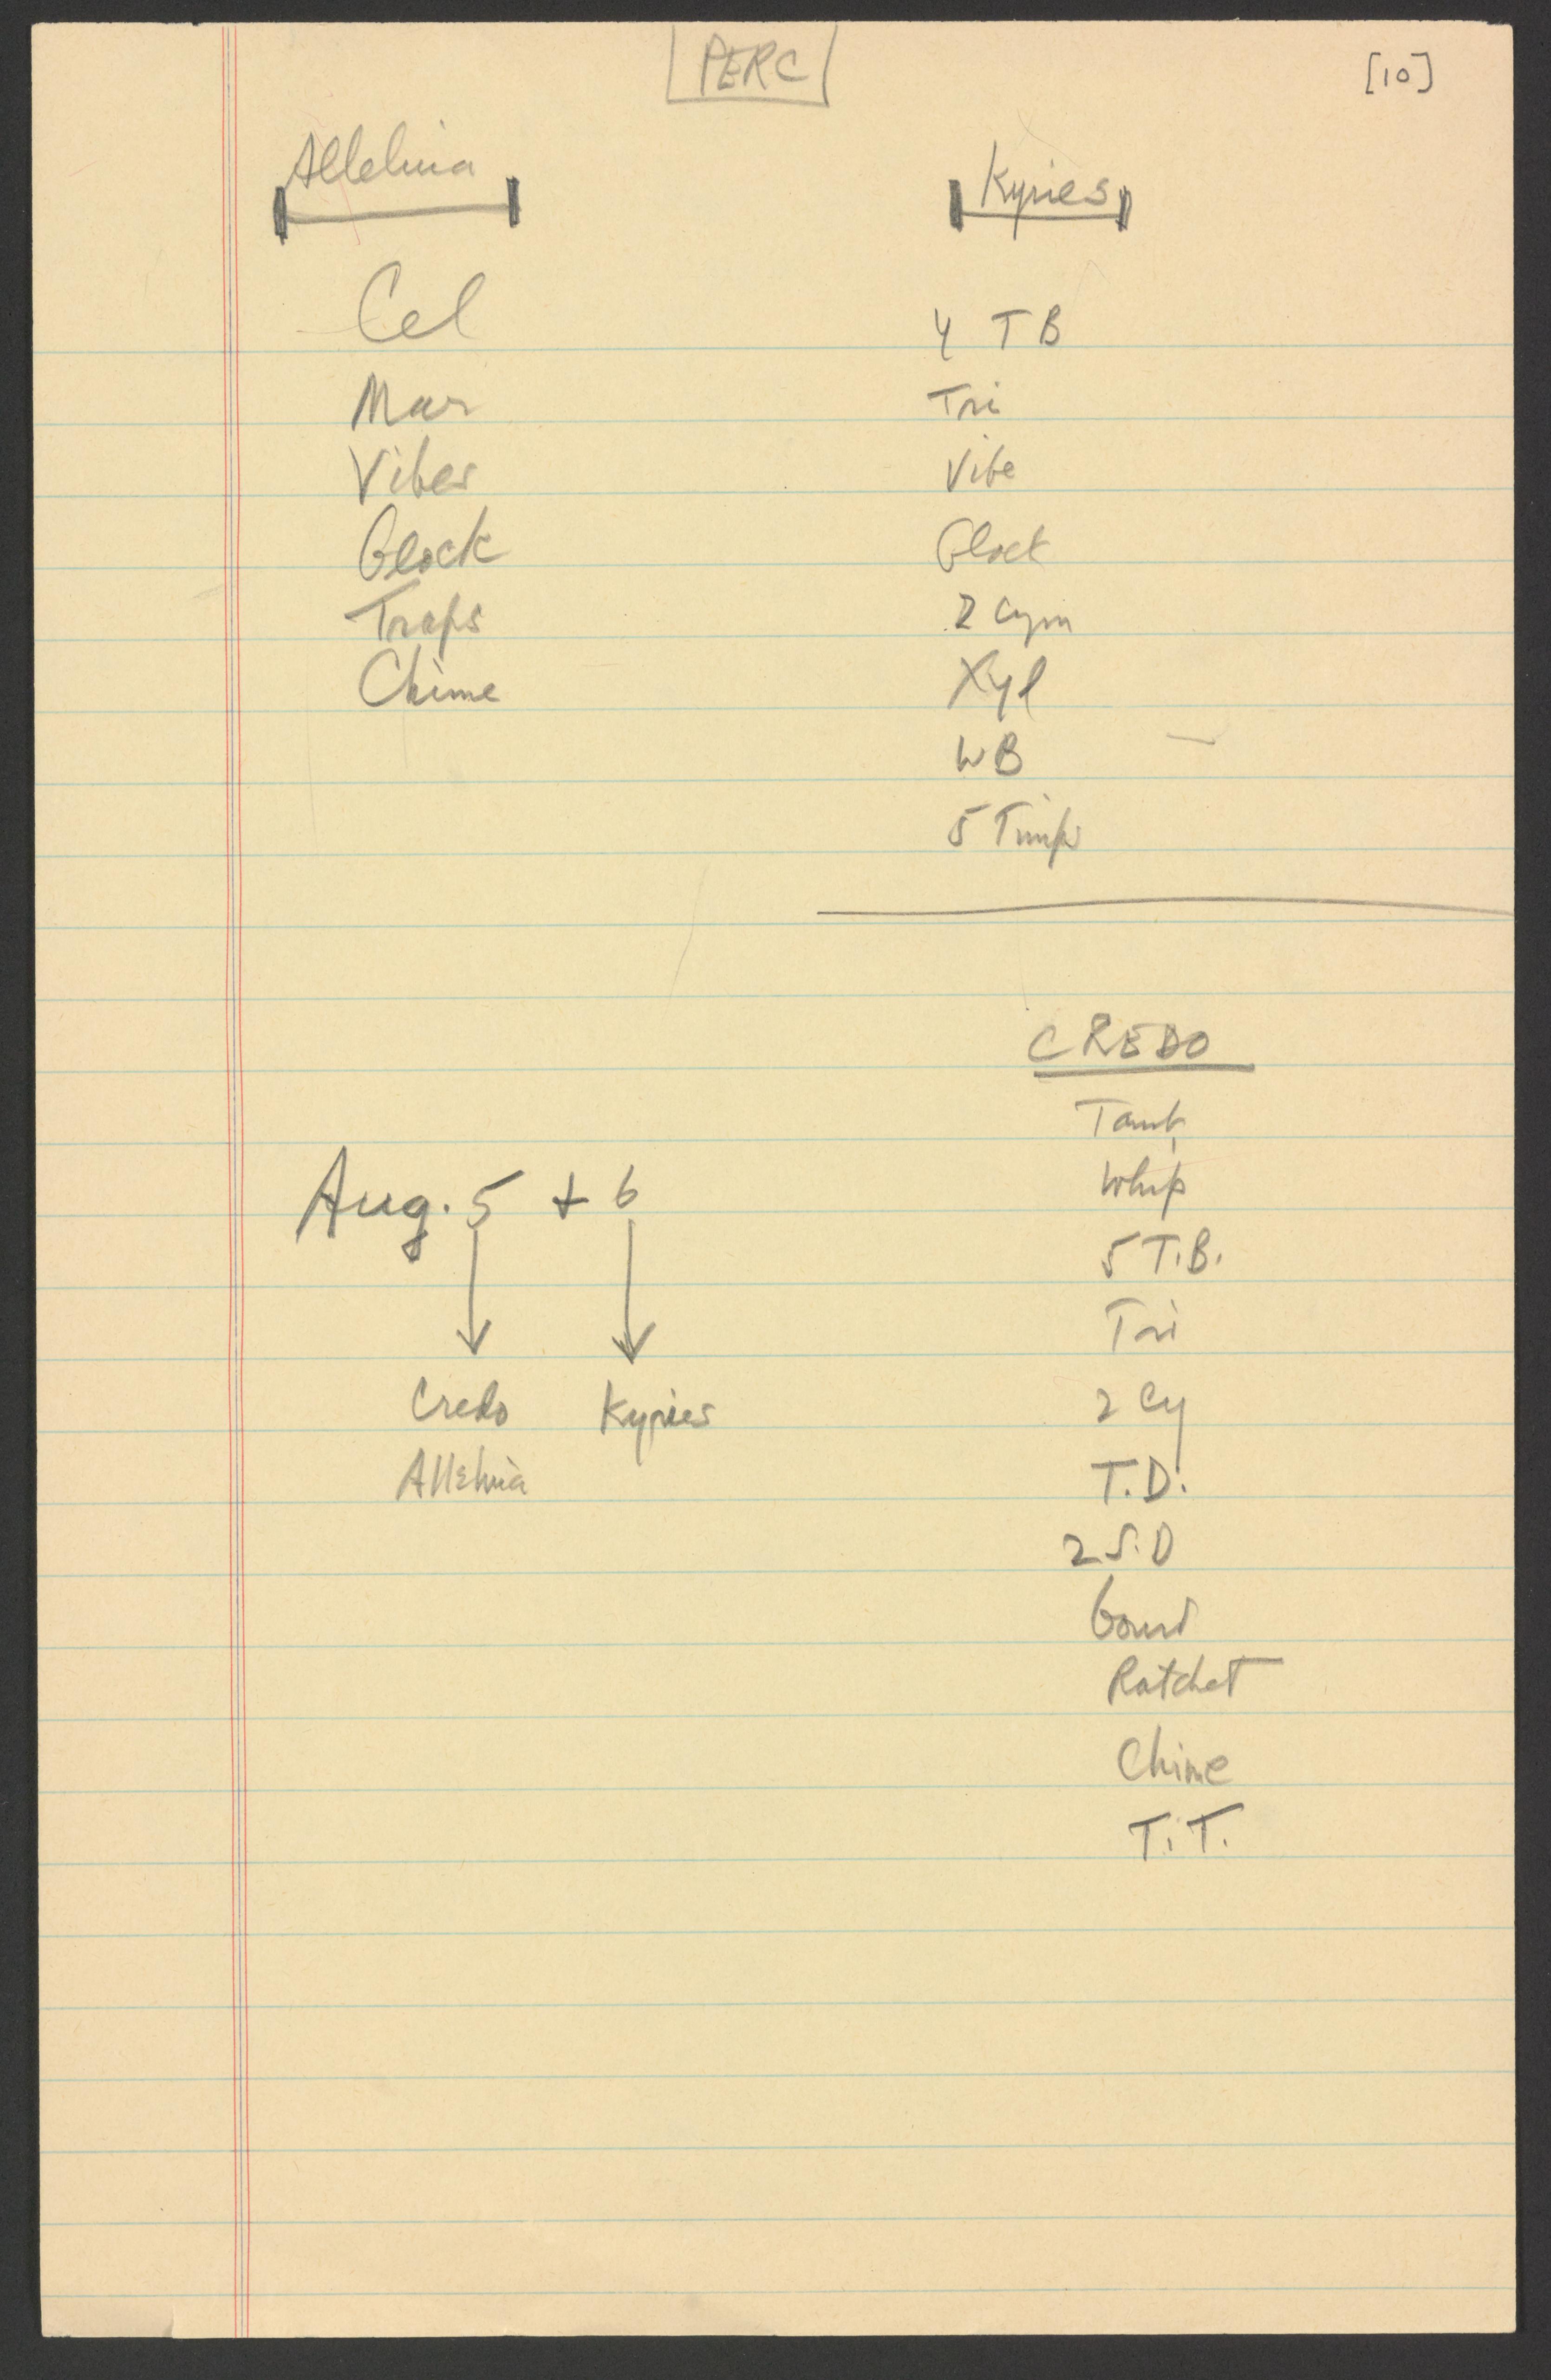 PERC
[10]
Alleluia
Cel
Mar
Vibes
Glock
Traps
Chime
Kyries
4 TB
Tri
Vibe
Glock
2 Cym
Xyl
WB
5 Timp
CREDO
Tamb
Whip
5 T.B.
Tri
2 Cy
T.D.
2 S.D
Gourd
Ratchet
Chime
T.T.
Aug. 5 + 6
Credo Kyries
Alleluia